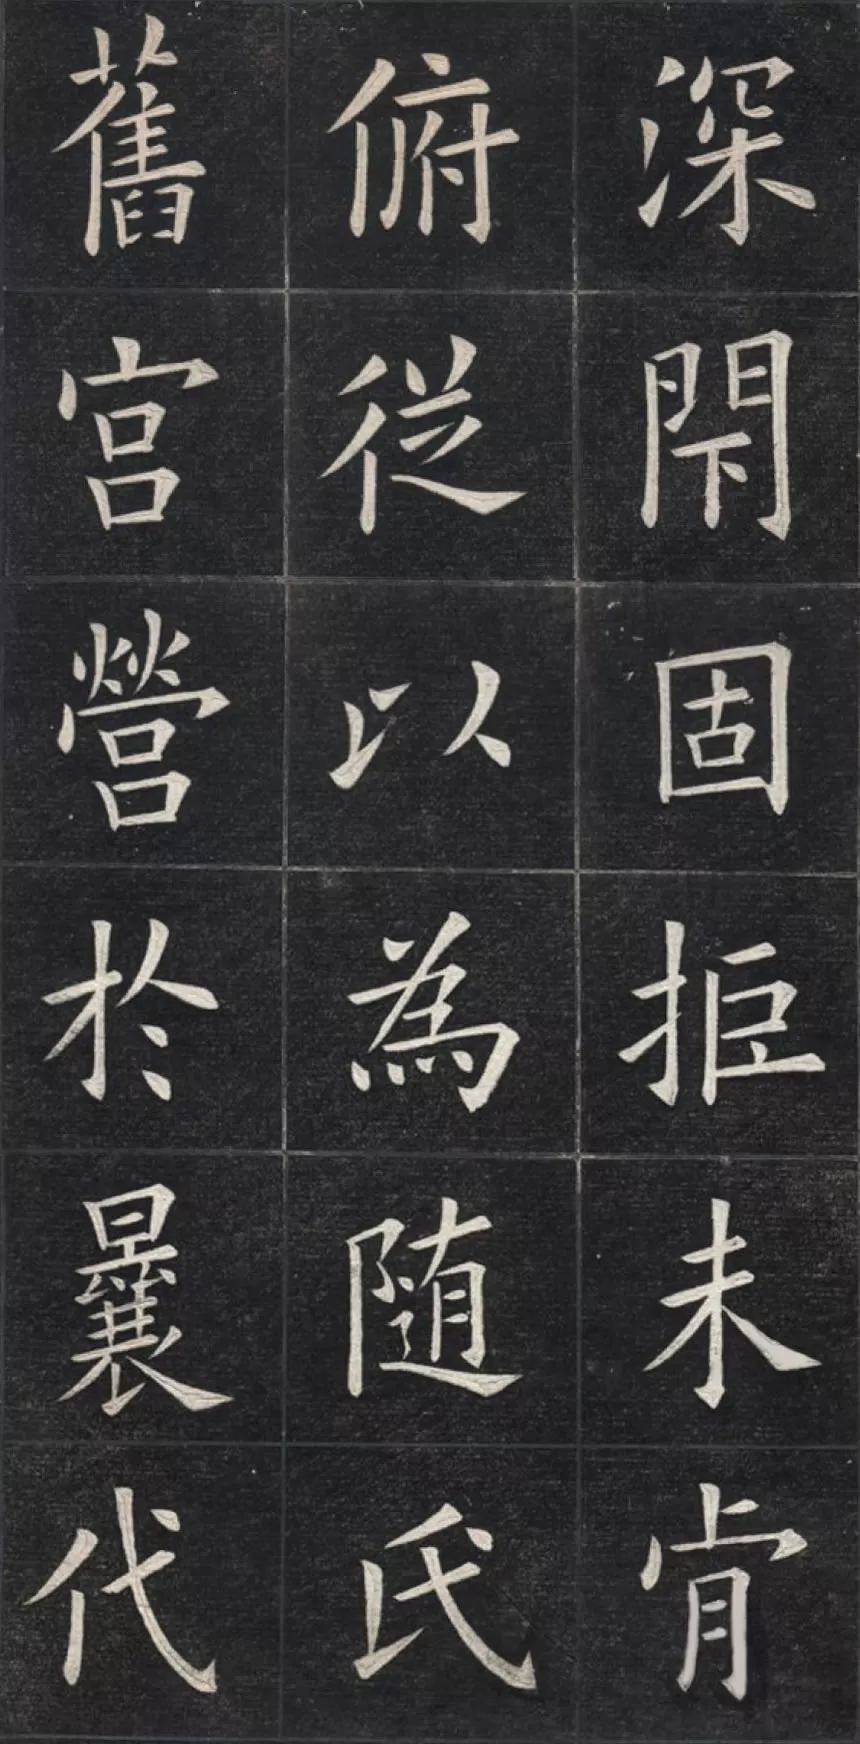 深閇固拒未肯
俯從以為随氏
舊宫營於曩代